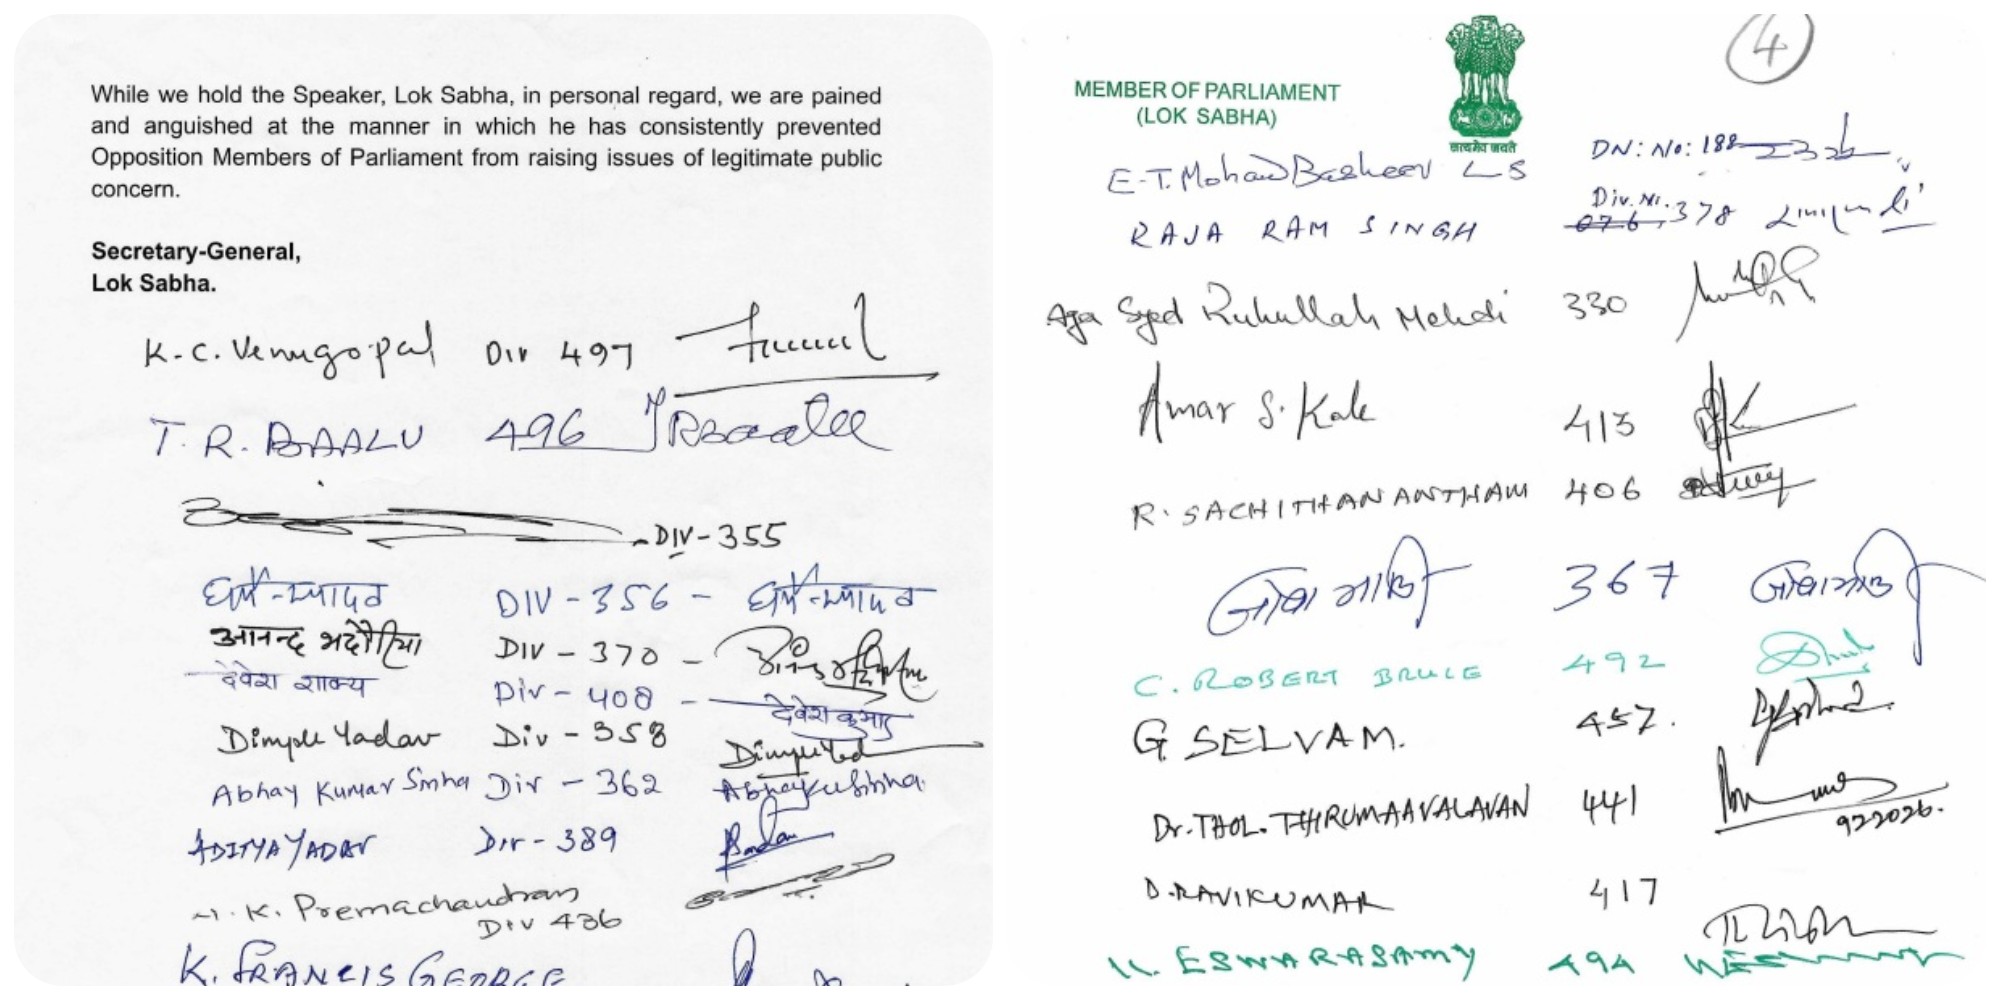 While we hold the Speaker, Lok Sabha, in personal regard, we are pained
and anguished at the manner in which he has consistently prevented
Opposition Members of Parliament from raising issues of legitimate public
concern.
Secretary-General,
Lok Sabha.
K.C. Venugopal Div 497
T. R. BAALU 496 TRBaalu
DIV-355
धर्मेन्द्र यादव DIV - 356 - धर्मेन्द्र यादव
आनन्द भदौरिया DIV - 370 -
देवेश शाक्य Div - 408 - देवेश कुमार
Dimple Yadav Div - 358
Abhay Kumar Sinha Div - 362 Abhaykusinha
ADITYA YADAV Div - 389
N. K. Premachandran
Div 436
K. FRANCIS GEORGE
4
MEMBER OF PARLIAMENT
(LOK SABHA)
सत्यमेव जयते
E.T. Mohamed Basheer LS DN: No: 188
RAJA RAM SINGH Div. No. 378
Aga Syed Ruhullah Mehdi 330
Amar S. Kale 413
R. SACHITHANANTHAM 406
367
C. ROBERT BRUCE 492
G SELVAM. 457.
Dr. THOL. THIRUMAAVALAVAN 441
922026.
D. RAVIKUMAR 417
K. ESWARASAMY 494